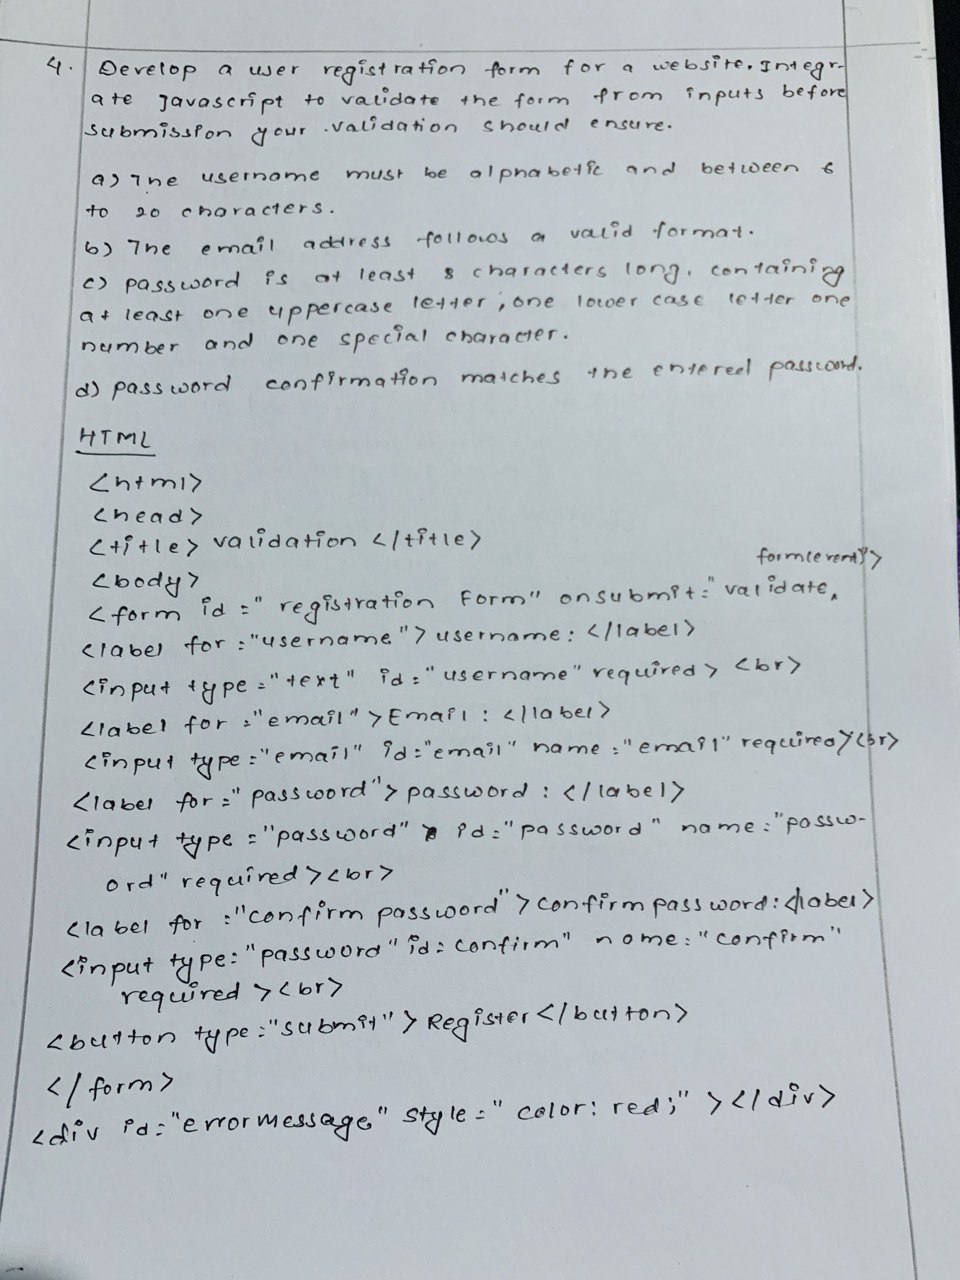 4. Develop a user registration form for a website. Integr-
ate Javascript to validate the form from inputs before
submission your validation should ensure.
a) The username must be alphabetic and between 6
to 20 characters.
b) The email address follows a valid format.
c) password is at least 8 characters long, containing
at least one uppercase letter, one lower case letter one
number and one special character.
d) password confirmation matches the entered password.
HTML
<html>
<head>
<title> validation </title>
<body>
form(event)">
<form id =" registration Form" onsubmit="validate,
<label for ="username"> username: </label>
<input type="text" id="username" required> <br>
<label for ="email">Email: </label>
<input type="email" id="email" name="email" required><br>
<label for="password"> password : </label>
<input type ="password" id="password" name="passw-
ord" required><br>
<label for ="confirm password">confirm password:</label>
<input type="password" id=confirm" name="confirm"
required ><br>
<button type="submit">Register</button>
</form>
<div id="errormessage" style=" color: red;" ></div>